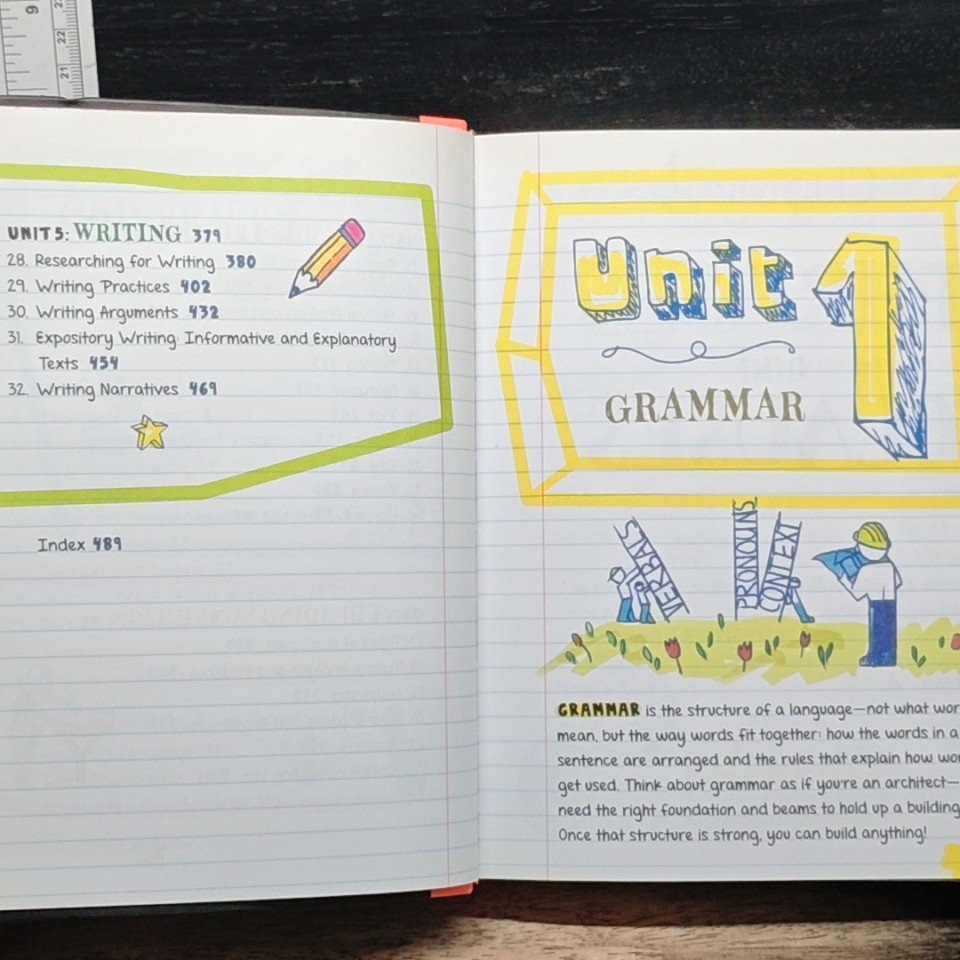 9
22
21
UNIT 5: WRITING 379
28. Researching for Writing 380
29. Writing Practices 402
30. Writing Arguments 432
31. Expository Writing: Informative and Explanatory
Texts 454
32. Writing Narratives 469
Index 489
Unit 1
GRAMMAR
VERBALS
PRONOUNS
CONTEXT
GRAMMAR is the structure of a language—not what
mean, but the way words fit together: how the words in a
sentence are arranged and the rules that explain how
get used. Think about grammar as if you're an architect—
need the right foundation and beams to hold up a building.
Once that structure is strong, you can build anything!